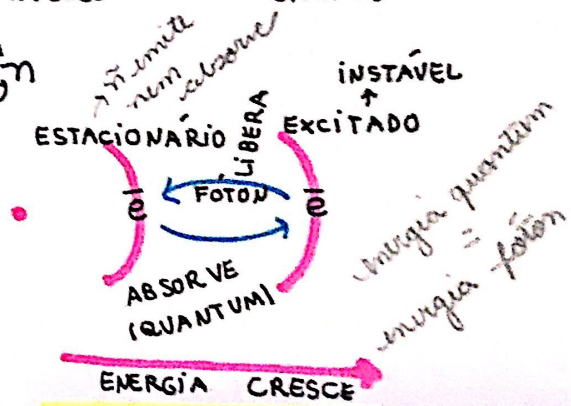 ñ emite
nem
absorve
INSTÁVEL
ESTACIONÁRIO
EXCITADO
LIBERA
FÓTON
e
e
ABSORVE
(QUANTUM)
energia quantum
=
energia fóton
ENERGIA CRESCE